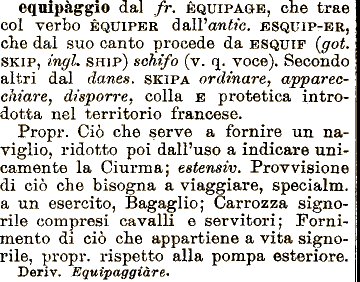 equipàggio dal fr. ÈQUIPAGE, che trae
col verbo ÈQUIPER dall'antic. ESQUIP-ER,
che dal suo canto procede da ESQUIF (got.
SKIP, ingl. SHIP) schifo (v. q. voce). Secondo
altri dal danes. SKIPA ordinare, apparec-
chiare, disporre, colla E protetica intro-
dotta nel territorio francese.
Propr. Ciò che serve a fornire un na-
viglio, ridotto poi dall'uso a indicare uni-
camente la Ciurma; estensiv. Provvisione
di ciò che bisogna a viaggiare, specialm.
a un esercito, Bagaglio; Carrozza signo-
rile compresi cavalli e servitori; Forni-
mento di ciò che appartiene a vita signo-
rile, propr. rispetto alla pompa esteriore.
Deriv. Equipaggiàre.